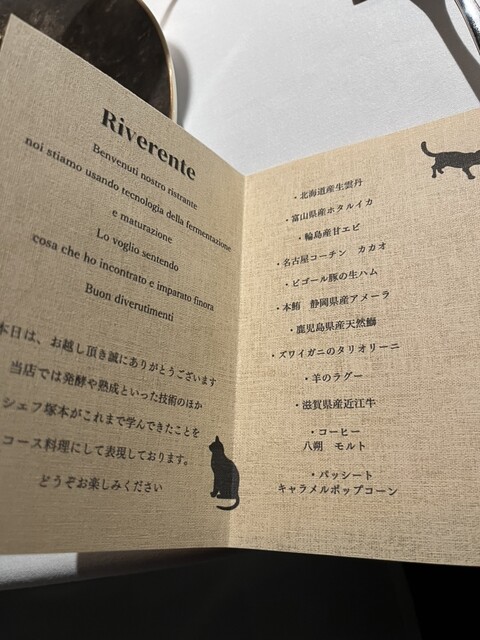 Riverente
Benvenuti nostro ristrante
noi stiamo usando tecnologia della fermentazione
e maturazione
Lo voglio sentendo
cosa che ho incontrato e imparato finora
Buon diverutimenti
本日は、お越し頂き誠にありがとうございます
当店では発酵や熟成といった技術のほか
シェフ塚本がこれまで学んできたことを
コース料理にして表現しております。
どうぞお楽しみください
・北海道産生雲丹
・富山県産ホタルイカ
・輪島産甘エビ
・名古屋コーチン カカオ
・ビゴール豚の生ハム
・本鮪 静岡県産アメーラ
・鹿児島県産天然鰤
・ズワイガニのタリオリーニ
・羊のラグー
・滋賀県産近江牛
・コーヒー
八朔 モルト
・パッシート
キャラメルポップコーン